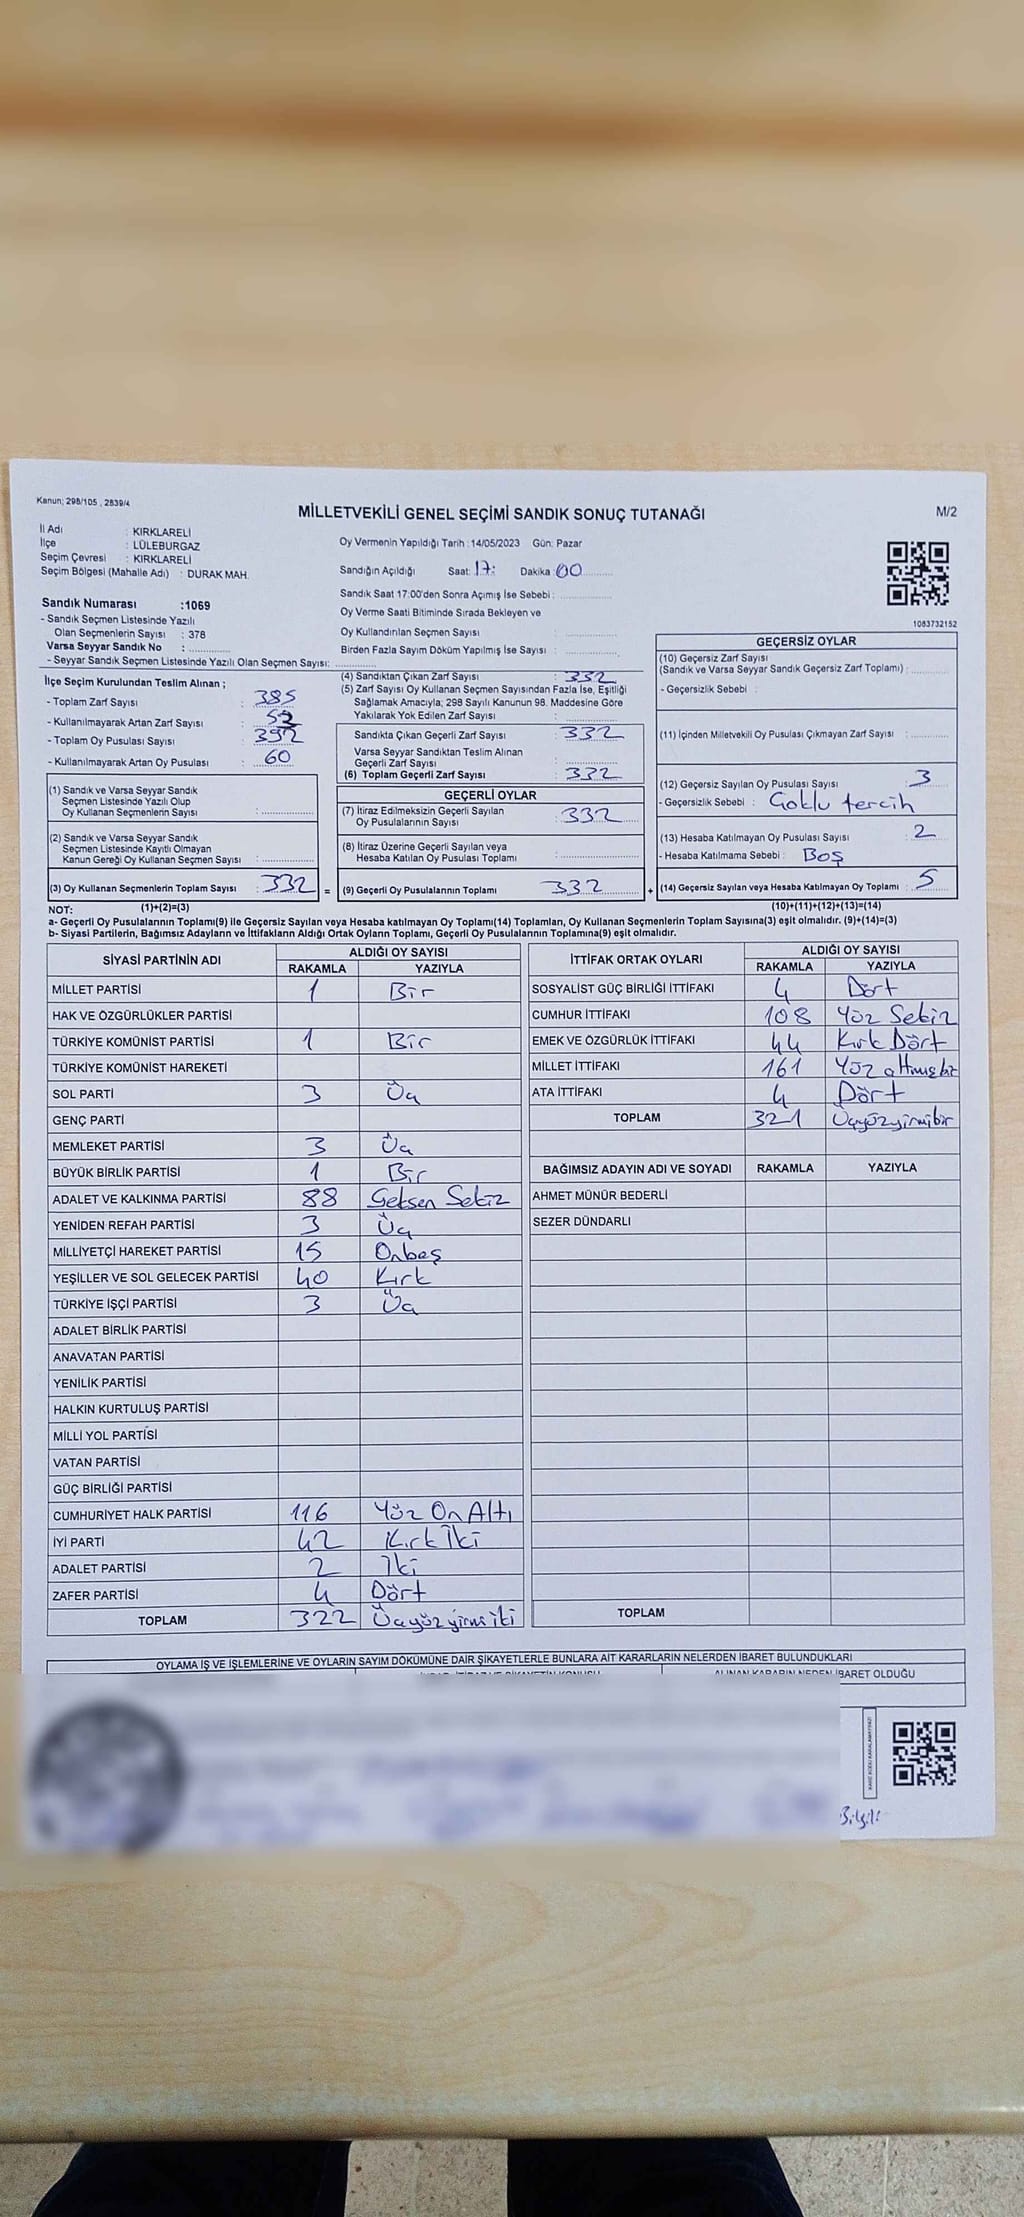 Kanun; 298/105 , 2839/4
MİLLETVEKİLİ GENEL SEÇİMİ SANDIK SONUÇ TUTANAĞI
M/2
İl Adı : KIRKLARELİ
İlçe : LÜLEBURGAZ
Seçim Çevresi : KIRKLARELİ
Seçim Bölgesi (Mahalle Adı) : DURAK MAH.
Oy Vermenin Yapıldığı Tarih : 14/05/2023 Gün: Pazar
Sandığın Açıldığı Saat: 17: Dakika :00
Sandık Saat 17:00'den Sonra Açılmış İse Sebebi :
Oy Verme Saati Bitiminde Sırada Bekleyen ve
Oy Kullandırılan Seçmen Sayısı :
Birden Fazla Sayım Döküm Yapılmış İse Sayısı :
1083732152
Sandık Numarası :1069
- Sandık Seçmen Listesinde Yazılı
Olan Seçmenlerin Sayısı : 378
Varsa Seyyar Sandık No :
- Seyyar Sandık Seçmen Listesinde Yazılı Olan Seçmen Sayısı:
İlçe Seçim Kurulundan Teslim Alınan ;
- Toplam Zarf Sayısı : 385
- Kullanılmayarak Artan Zarf Sayısı :
- Toplam Oy Pusulası Sayısı : 392
- Kullanılmayarak Artan Oy Pusulası : 60
(1) Sandık ve Varsa Seyyar Sandık
Seçmen Listesinde Yazılı Olup
Oy Kullanan Seçmenlerin Sayısı :
(2) Sandık ve Varsa Seyyar Sandık
Seçmen Listesinde Kayıtlı Olmayan
Kanun Gereği Oy Kullanan Seçmen Sayısı :
(3) Oy Kullanan Seçmenlerin Toplam Sayısı : 332 =
(1)+(2)=(3)
(4) Sandıktan Çıkan Zarf Sayısı : 332
(5) Zarf Sayısı Oy Kullanan Seçmen Sayısından Fazla İse, Eşitliği
Sağlamak Amacıyla; 298 Sayılı Kanunun 98. Maddesine Göre
Yakılarak Yok Edilen Zarf Sayısı :
Sandıkta Çıkan Geçerli Zarf Sayısı : 332
Varsa Seyyar Sandıktan Teslim Alınan
Geçerli Zarf Sayısı :
(6) Toplam Geçerli Zarf Sayısı : 332
GEÇERLİ OYLAR
(7) İtiraz Edilmeksizin Geçerli Sayılan
Oy Pusulalarının Sayısı : 332
(8) İtiraz Üzerine Geçerli Sayılan veya
Hesaba Katılan Oy Pusulası Toplamı :
(9) Geçerli Oy Pusulalarının Toplamı 332 +
GEÇERSİZ OYLAR
(10) Geçersiz Zarf Sayısı
(Sandık ve Varsa Seyyar Sandık Geçersiz Zarf Toplamı) :
- Geçersizlik Sebebi :
(11) İçinden Milletvekili Oy Pusulası Çıkmayan Zarf Sayısı :
(12) Geçersiz Sayılan Oy Pusulası Sayısı : 3
- Geçersizlik Sebebi : Çoklu tercih
(13) Hesaba Katılmayan Oy Pusulası Sayısı : 2
- Hesaba Katılmama Sebebi : Boş
(14) Geçersiz Sayılan veya Hesaba Katılmayan Oy Toplamı : 5
(10)+(11)+(12)+(13)=(14)
NOT:
a- Geçerli Oy Pusulalarının Toplamı(9) ile Geçersiz Sayılan veya Hesaba katılmayan Oy Toplamı(14) Toplamları, Oy Kullanan Seçmenlerin Toplam Sayısına(3) eşit olmalıdır. (9)+(14)=(3)
b- Siyasi Partilerin, Bağımsız Adayların ve İttifakların Aldığı Ortak Oyların Toplamı, Geçerli Oy Pusulalarının Toplamına(9) eşit olmalıdır.
SİYASİ PARTİNİN ADI ALDIĞI OY SAYISI
RAKAMLA YAZIYLA
MİLLET PARTİSİ 1 Bir
HAK VE ÖZGÜRLÜKLER PARTİSİ
TÜRKİYE KOMÜNİST PARTİSİ 1 Bir
TÜRKİYE KOMÜNİST HAREKETİ
SOL PARTİ 3 Üç
GENÇ PARTİ
MEMLEKET PARTİSİ 3 Üç
BÜYÜK BİRLİK PARTİSİ 1 Bir
ADALET VE KALKINMA PARTİSİ 88 Seksen Sekiz
YENİDEN REFAH PARTİSİ 3 Üç
MİLLİYETÇİ HAREKET PARTİSİ 15 Onbeş
YEŞİLLER VE SOL GELECEK PARTİSİ 40 Kırk
TÜRKİYE İŞÇİ PARTİSİ 3 Üç
ADALET BİRLİK PARTİSİ
ANAVATAN PARTİSİ
YENİLİK PARTİSİ
HALKIN KURTULUŞ PARTİSİ
MİLLİ YOL PARTİSİ
VATAN PARTİSİ
GÜÇ BİRLİĞİ PARTİSİ
CUMHURİYET HALK PARTİSİ 116 Yüz On Altı
İYİ PARTİ 42 Kırk İki
ADALET PARTİSİ 2 İki
ZAFER PARTİSİ 4 Dört
TOPLAM 322 Üçyüzyirmi iki
İTTİFAK ORTAK OYLARI ALDIĞI OY SAYISI
RAKAMLA YAZIYLA
SOSYALİST GÜÇ BİRLİĞİ İTTİFAKI 4 Dört
CUMHUR İTTİFAKI 108 Yüz Sekiz
EMEK VE ÖZGÜRLÜK İTTİFAKI 44 Kırk Dört
MİLLET İTTİFAKI 161 Yüz altmış bir
ATA İTTİFAKI 4 Dört
TOPLAM 321 Üçyüzyirmibir
BAĞIMSIZ ADAYIN ADI VE SOYADI RAKAMLA YAZIYLA
AHMET MÜNÜR BEDERLİ
SEZER DÜNDARLI
TOPLAM
OYLAMA İŞ VE İŞLEMLERİNE VE OYLARIN SAYIM DÖKÜMÜNE DAİR ŞİKAYETLERLE BUNLARA AİT KARARLARIN NELERDEN İBARET BULUNDUKLARI
ALINAN KARARIN NEDEN İBARET OLDUĞU